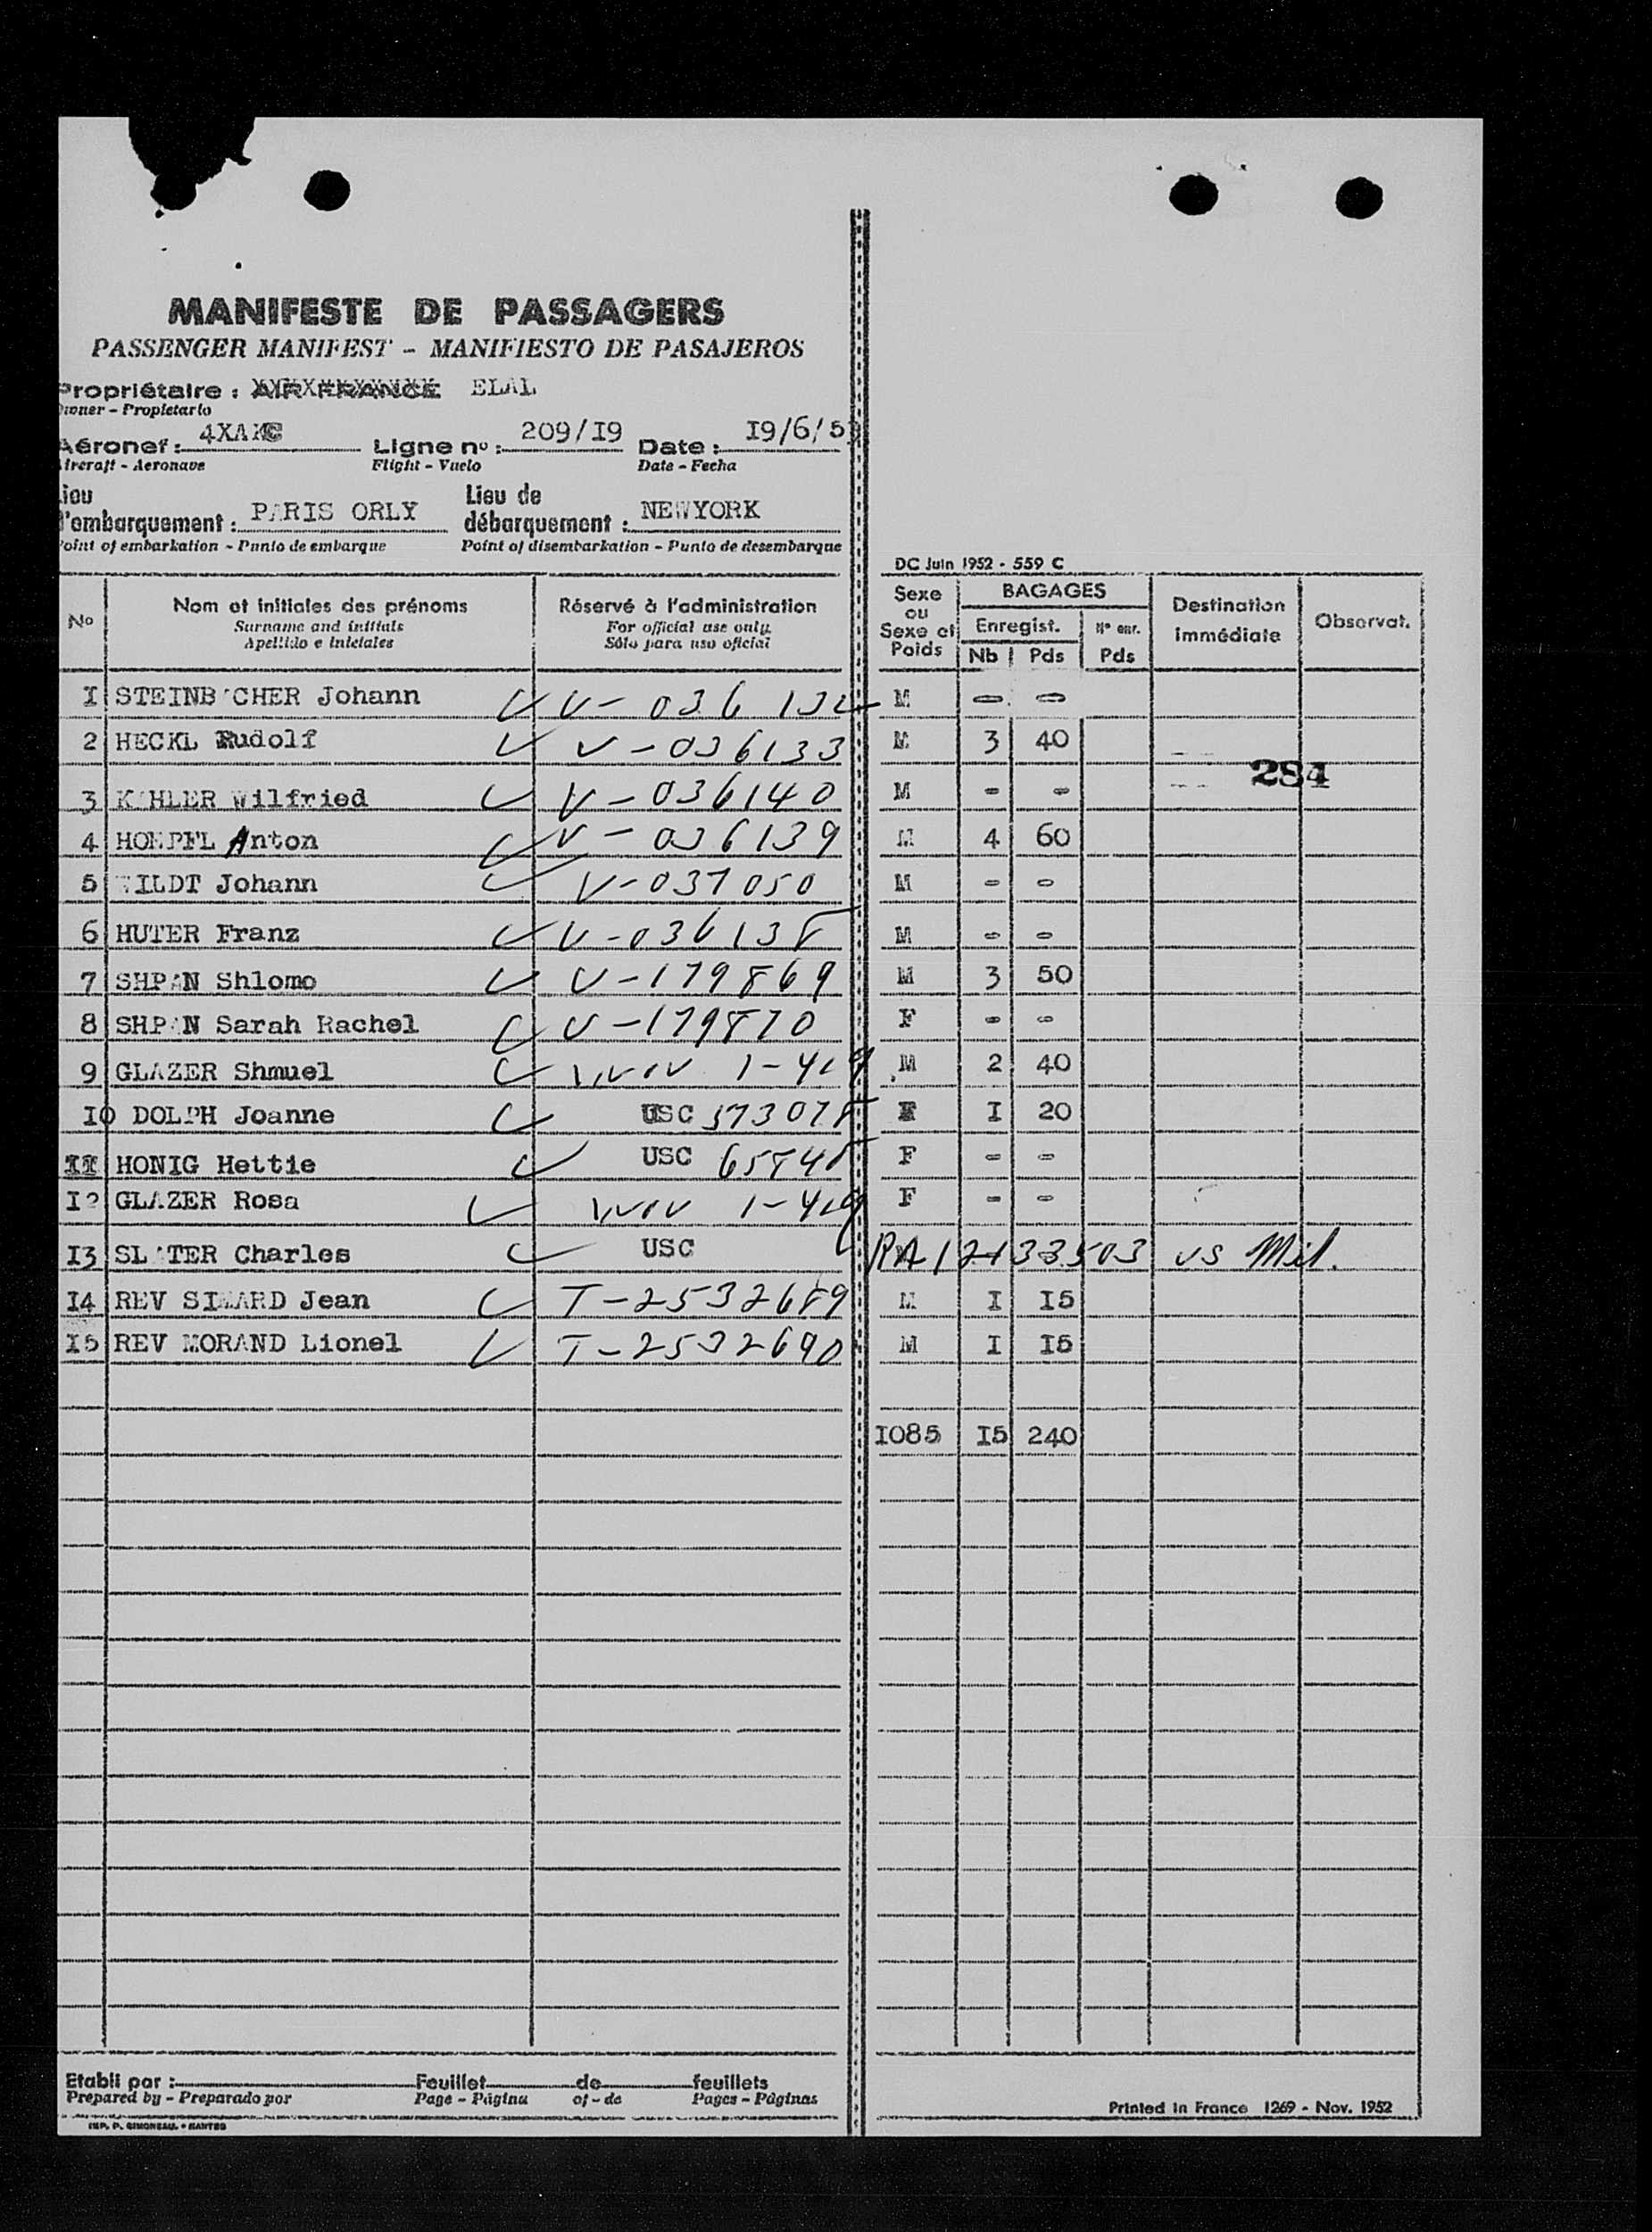 MANIFESTE DE PASSAGERS
PASSENGER MANIFEST - MANIFIESTO DE PASAJEROS
Propriétaire : AIR FRANCE ELAL
Owner - Propietario
Aéronef : 4XA Ligne nº : 209/I9 Date : I9/6/5
Aircraft - Aeronave Flight - Vuelo Date - Fecha
Lieu Lieu de
d'embarquement : PARIS ORLY débarquement : NEWYORK
Point of embarkation - Punto de embarque Point of disembarkation - Punto de desembarque
DC Juin 1952 - 559 C
No Nom et initiales des prénoms Réservé à l'administration Sexe ou Sexe et Poids BAGAGES Destination immédiate Observat.
Surname and initials For official use only Enregist. Nº enr.
Apellido e iniciales Sólo para uso oficial Nb Pds Pds
I STEINBACHER Johann V- 036 132 M - -
2 HECKL Rudolf V-036133 M 3 40
284
3 KAHLER Wilfried V-036140 M - -
4 HOEPFL Anton V- 036139 M 4 60
5 WILDT Johann V-037050 M - -
6 HUTER Franz V-036138 M - -
7 SHPAN Shlomo V-179869 M 3 50
8 SHPAN Sarah Rachel V-179870 F - -
9 GLAZER Shmuel M 2 40
I0 DOLPH Joanne USC 573078 F I 20
II HONIG Hettie USC 65848 F - -
I2 GLAZER Rosa F - -
I3 SLATER Charles USC RA12133503 US Mil.
I4 REV SIMARD Jean T-2532689 M I I5
I5 REV MORAND Lionel T-2532690 M I I5
I085 I5 240
Etabli par : Feuillet de feuillets
Prepared by - Preparado por Page - Página of - de Pages - Páginas
IMP. P. SIMONEAU. - NANTES
Printed in France 1269 - Nov. 1952